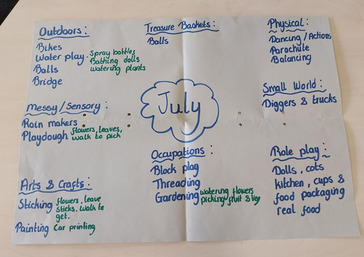 Outdoors:
Bikes
Water play. Spray bottles
Bathing dolls
watering plants
Balls
Bridge
Treasure Baskets:
Balls
Physical:
Dancing / Actions
Parachute
Balancing
Messy / Sensory:
Rain makers.
Playdough flowers, leaves,
walk to pick
July
Small World:
Diggers & trucks
Arts & Crafts:
Sticking flowers, leave
sticks. walk to
get.
Painting Car printing
Occupations:
Block play
Threading
Gardening watering flowers
picking fruit &
Role play:
Dolls, cots
kitchen, cups &
food packaging
real food